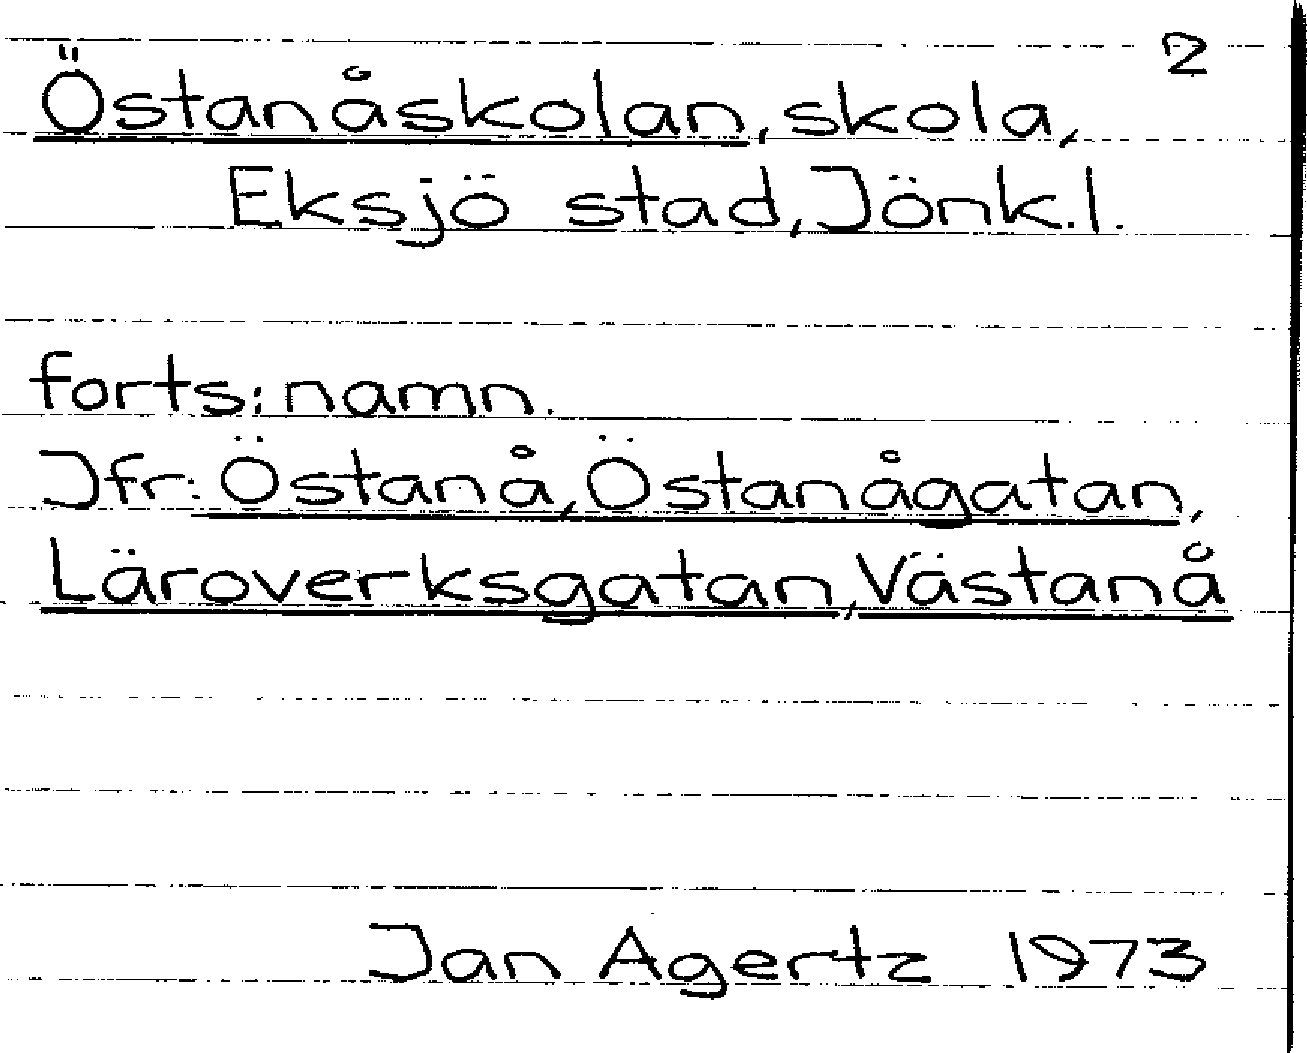 2
Östanåskolan, skola,
Eksjö stad, Jönk.l.
forts: namn.
Jfr: Östanå, Östanågatan,
Läroverksgatan, Västanå
Jan Agertz 1973